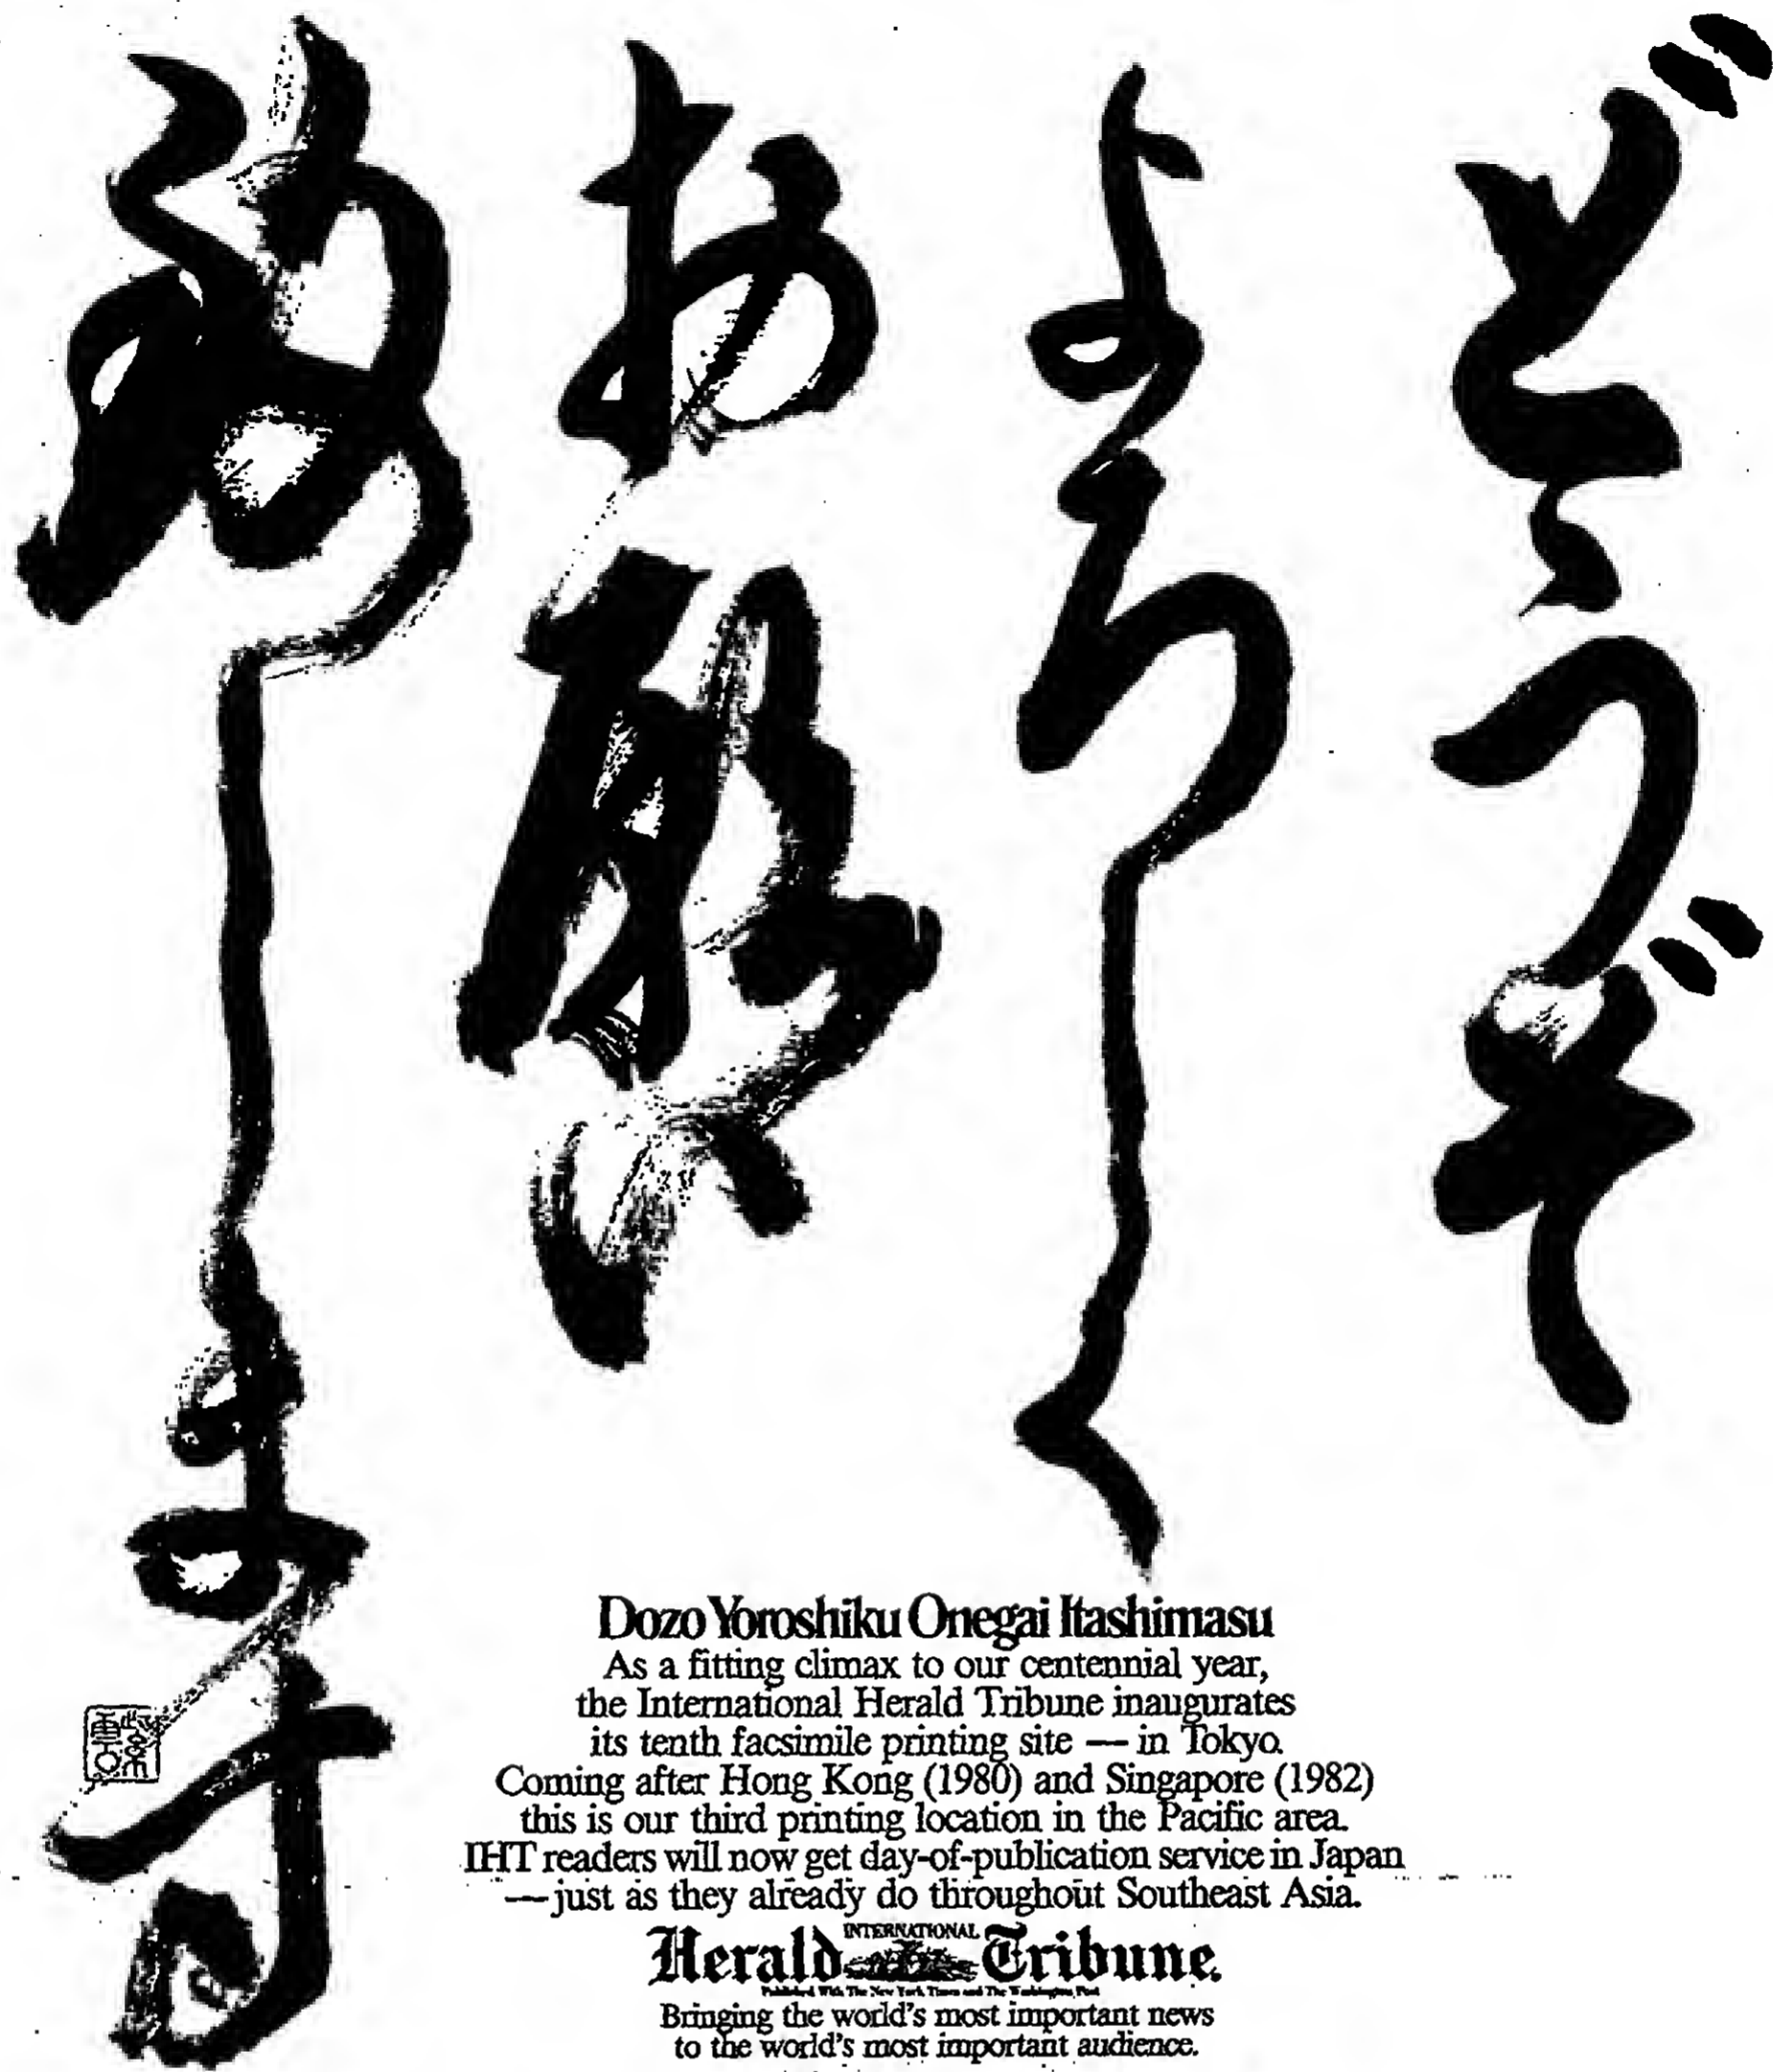 どうぞ
よろしく
お願い
致します
Dozo Yoroshiku Onegai Itashimasu
As a fitting climax to our centennial year,
the International Herald Tribune inaugurates
its tenth facsimile printing site — in Tokyo.
Coming after Hong Kong (1980) and Singapore (1982)
this is our third printing location in the Pacific area.
IHT readers will now get day-of-publication service in Japan
— just as they already do throughout Southeast Asia.
INTERNATIONAL
Herald Tribune.
Published With The New York Times and The Washington Post
Bringing the world's most important news
to the world's most important audience.